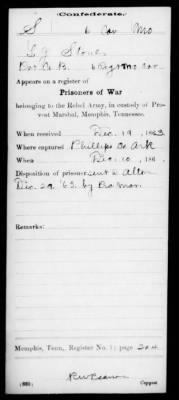 Confederate.
S 6 Cav Mo
Co. B. 6 Regt Mo Cav.
Appears on a register of
Prisoners of War
belonging to the Rebel Army, in custody of Pro-
vost Marshal, Memphis, Tennessee.
When received Dec. 19, 1863
Where captured Phillips Co Ark
When Dec. 10, 186 .
Disposition of prisoner sent to Alton
Dec. 29 '63. by
Remarks:
Memphis, Tenn., Register No. 1; page 204
Copyist.